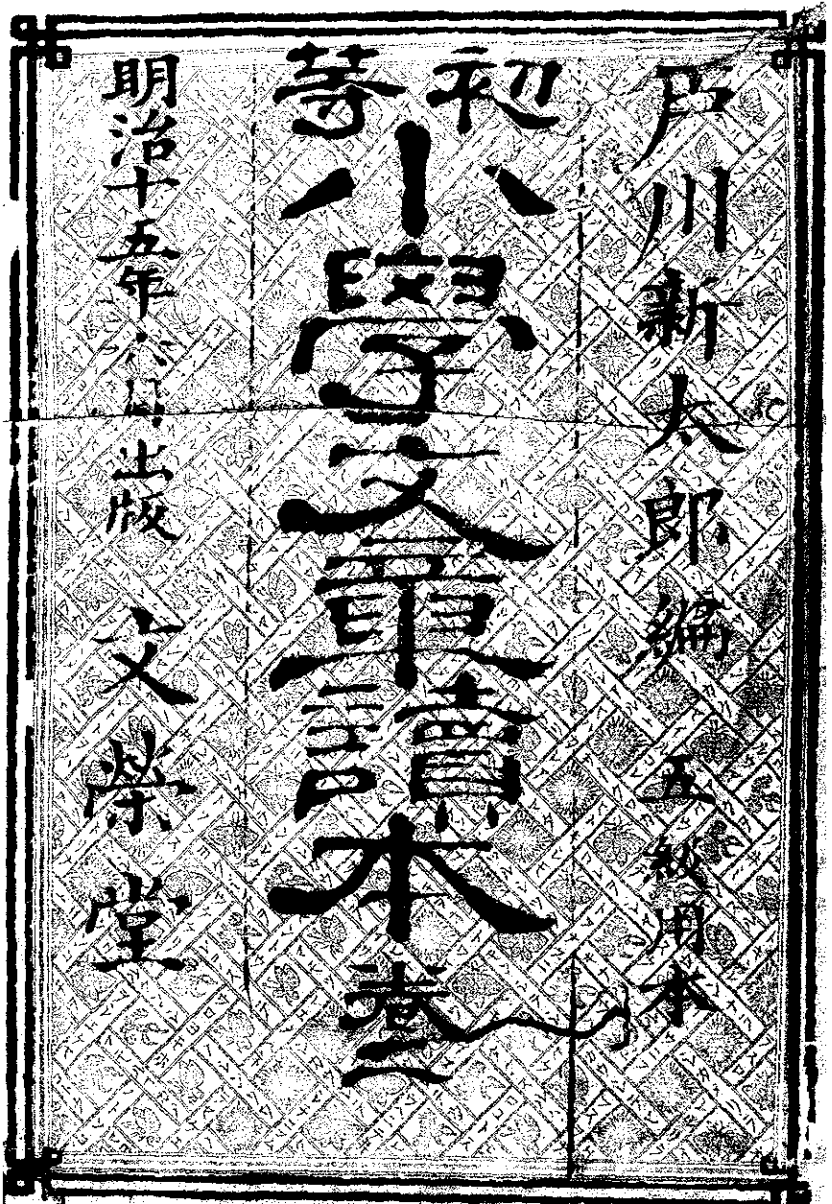 戸川新太郎編　五級用本
初等
小學文章讀本卷二
明治十五年六月出版　文榮堂